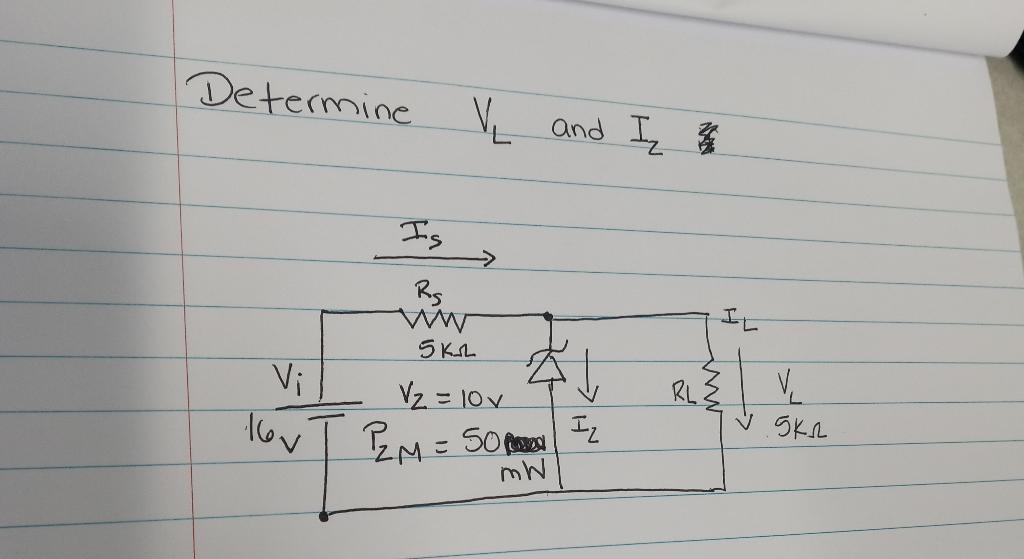 Determine V_L and I_Z
I_S
R_S
5KΩ
I_L
Vi
16v
V_Z = 10v
P_ZM = 50
mW
I_Z
RL
V_L
5KΩ